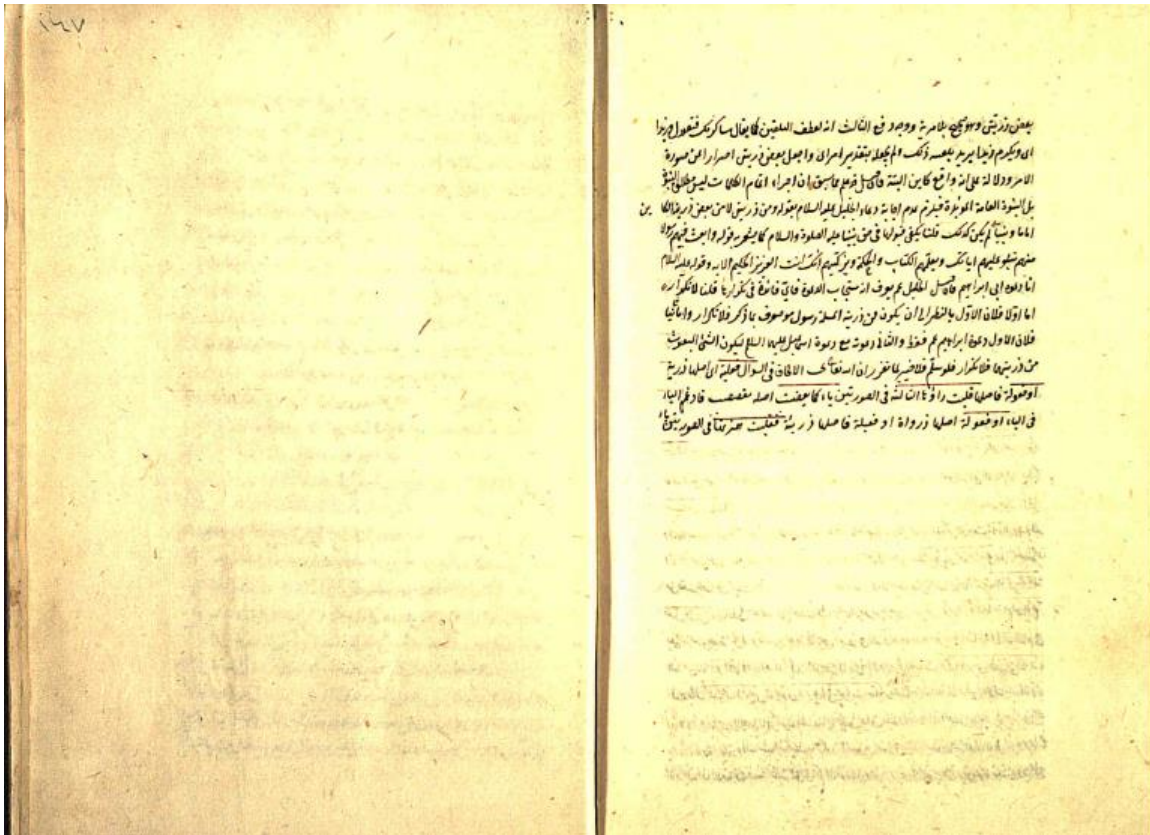 ١٤٧
بعض ذريتى وهو صحيح بلا مرية ووجه دفع الثالث انه لعطف التلقين كما يقال ساكرمك فتقول وزيدا
اى ويكرم زيدا يريد تلقينه ذلك ولم يجعله بتقدير امراى واجعل بعض ذريتى احترازا عن صورة
الامر ودلالة على انه واقع كاين البتة فان قيل قد علم مما سبق ان اجراء اتمام الكلمات ليس مطلق النبوة
بل النبوة العامة المؤبدة فيلزم عدم اجابة دعاء الخليل عليه السلام بقوله ومن ذريتى لان من بعض ذريته
اماما ونبيا لم يكن كذلك قلنا يكفى قبولها فى حق نبينا عليه الصلوة والسلام كما يشعر به قوله وابعث فيهم رسولا
منهم يتلو عليهم اياتك ويعلمهم الكتاب والحكمة ويزكيهم انك انت العزيز الحكيم الاية وقوله عليه السلام
انا دعوة ابى ابراهيم فان قيل الخليل عم يعرف انه مستجاب الدعوة فاى فائدة فى تكرارها قلنا لا تكرار
اما اولا فلان الاول بالنظر الى ان يكون من ذريته المسلمة رسول موصوف بما ذكر فلا تكرار واما ثانيا
فلان الاول دعوة ابراهيم عم فقط والثانى دعوته مع دعوة اسماعيل عليهما السلام ليكون النبى المبعوث
من ذريتهما فلا تكرار فلو سلم فلا ضير لما تقرر ان الله تعالى يحب الالحاح فى السؤال فعلية اى اصلها ذرية
او فعولة فاصلها قلبت راؤها الثالثة فى الصورتين ياء كما فى تقضيت اصله تقضضت فادغم الياء
فى الياء او فعولة اصلها ذروأة او فعيلة فاصلها ذريئة فقلبت همزتها فى الصورتين ياء